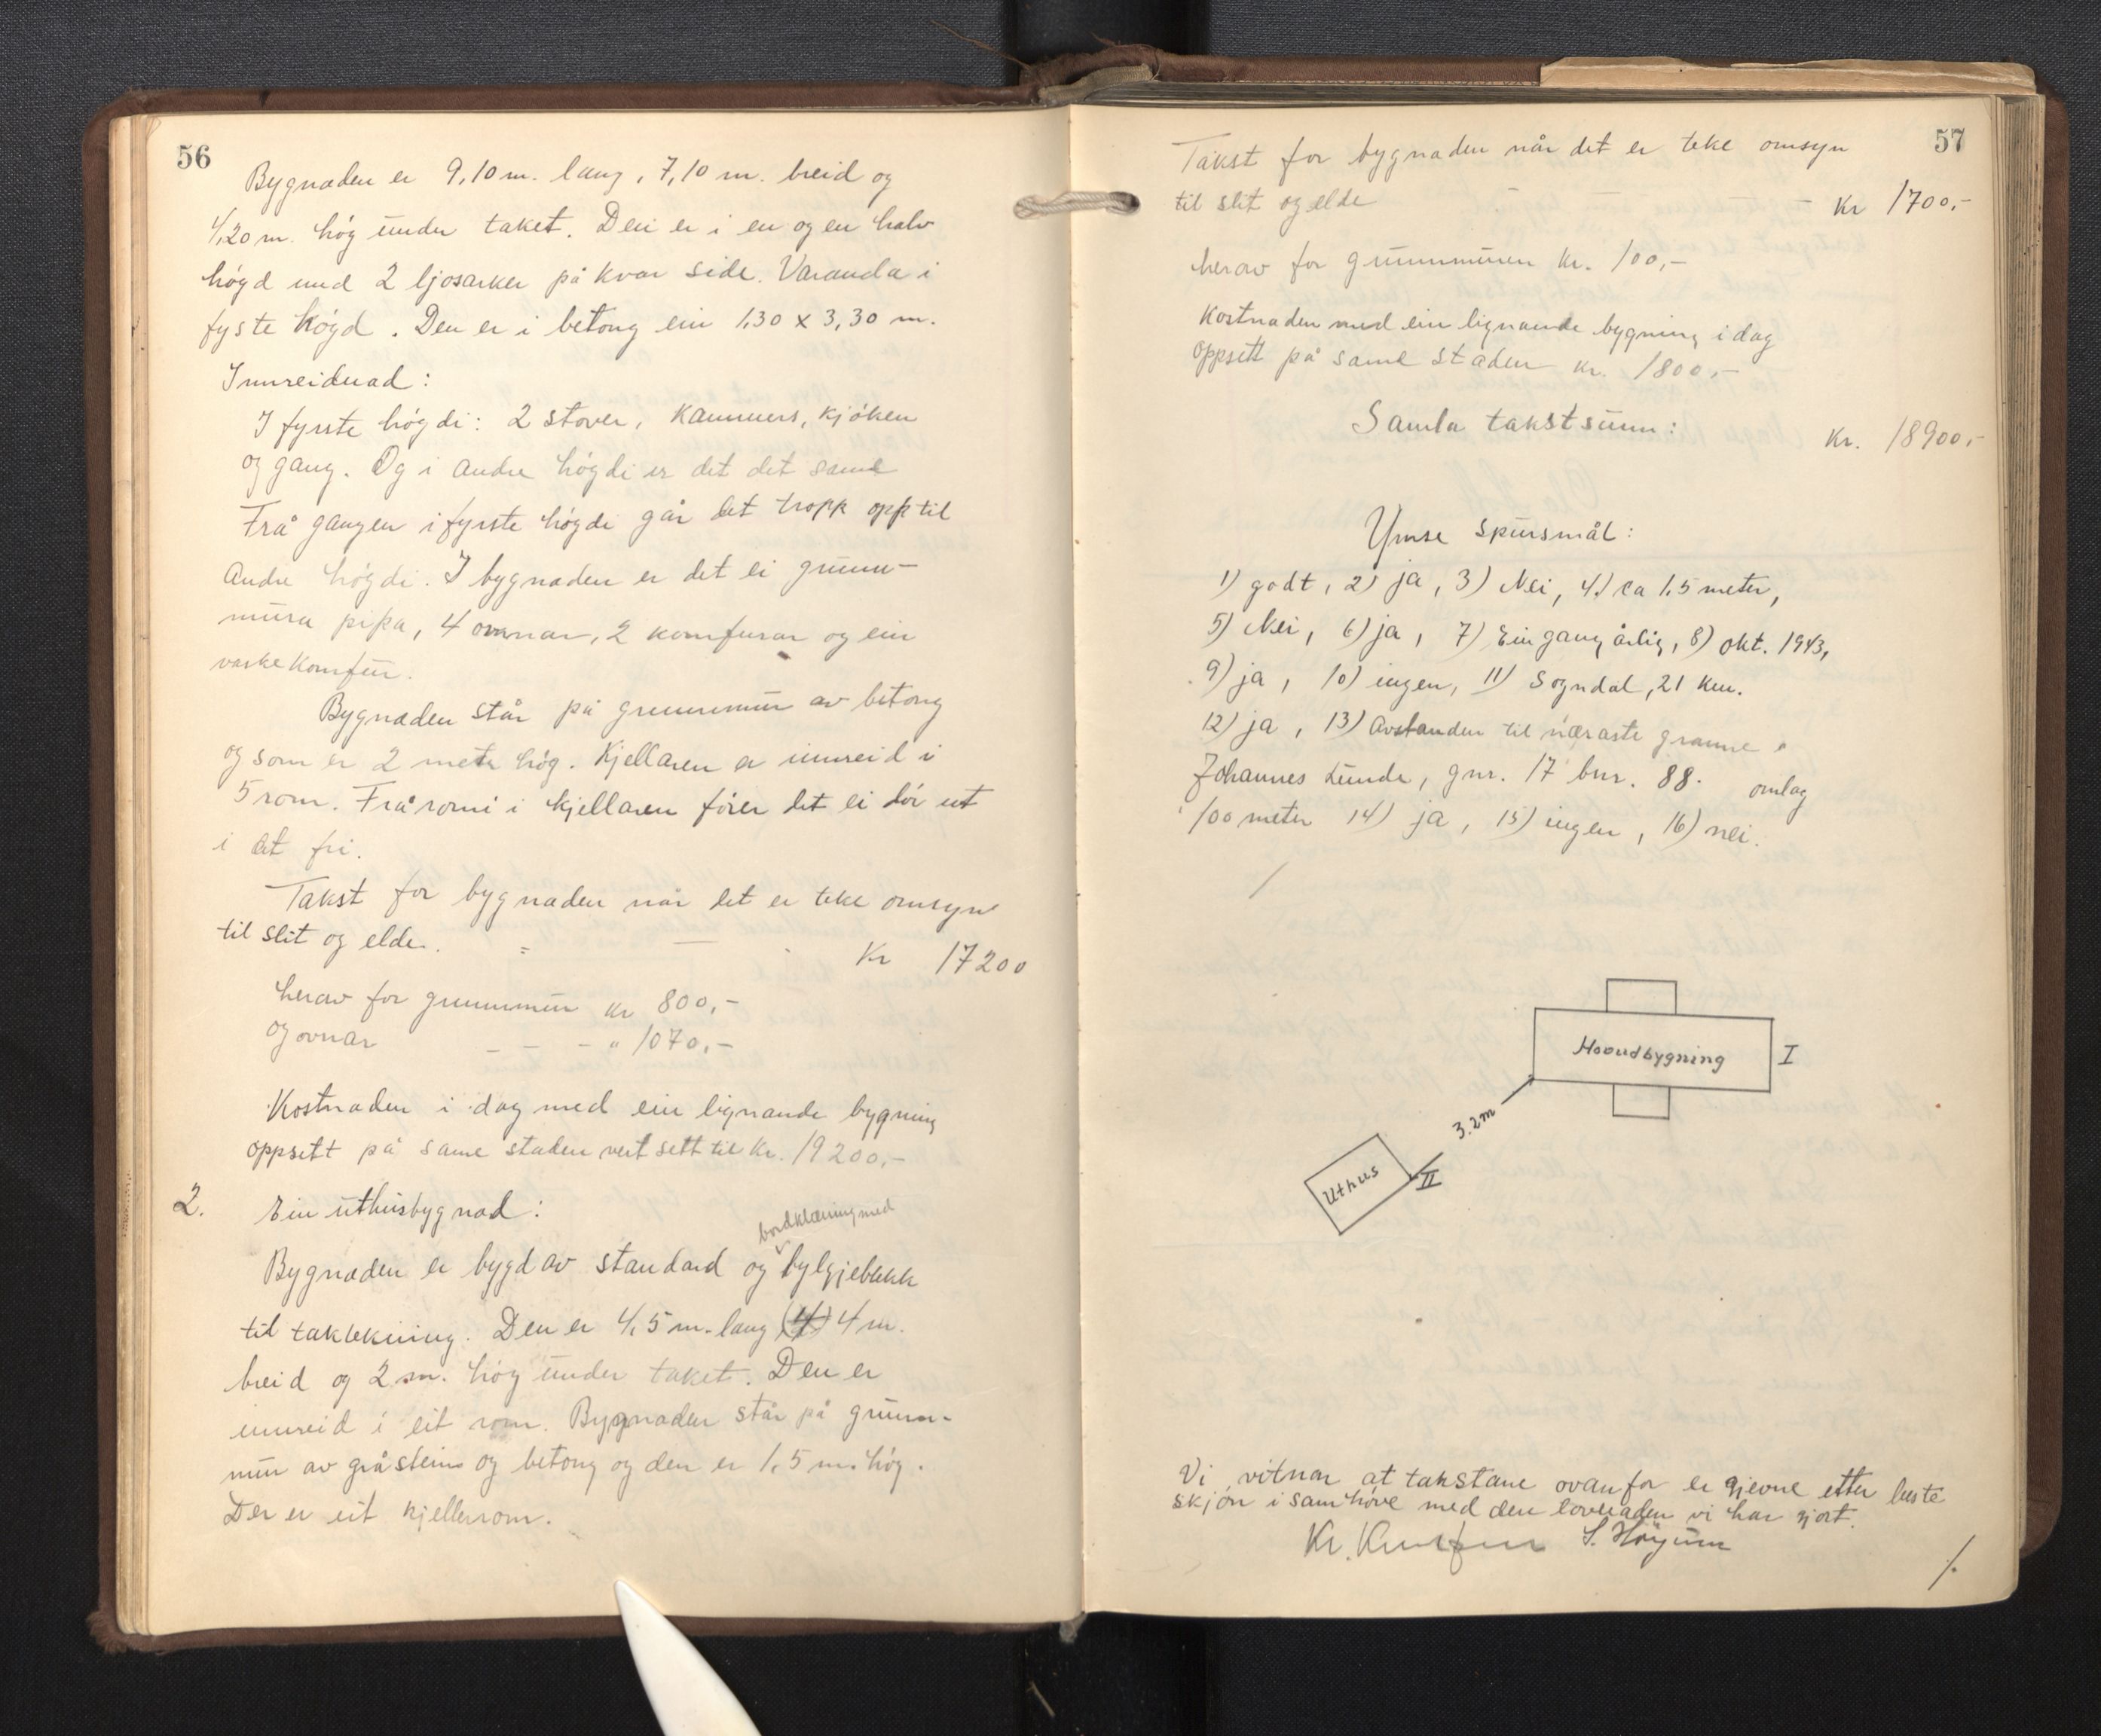 56
Bygnaden er 9,10 m. lang, 7,10 m. breid og
4,20 m. høg under taket. Den er i en og en halv
høgd med 2 ljosarker på kvar side. Varanda i
fyste høgd. Den er i betong ein 1,30 x 3,30 m.
Innreidnad:
I fyrste høgdi: 2 stover, kammers, kjøken
og gang. Og i andre høgdi er det det same
Frå gangen i fyrste høgdi går det tropp opp til
andre høgdi. I bygnaden er det ei grunn-
mura pipa, 4 omnar, 2 komfurar og ein
vaskekomfur.
Bygnaden står på grunnmur av betong
og som er 2 meter høg. Kjellaren er innreid i
5 rom. Frå romi i kjellaren fører det ei dør ut
i det fri.
Takst for bygnaden når det er teke omsyn
til slit og elde. = — - Kr 17200
herav for grunnmur kr 800,-
og ovnar - - - " 1070,-
Kostnaden i dag med ein lignande bygning
oppsett på same staden vert sett til kr. 19200,-
2. Ein uthusbygnad:
bordklæning med
Bygnaden er bygd av standard og bylgjeblekk
til taktekning. Den er 4,5 m. lang (4) 4 m.
breid og 2 m. høg under taket. Den er
innreid i eit rom. Bygnaden står på grunn-
mur av gråstein og betong og den er 1,5 m. høg.
Der er eit kjellerrom.
57
Takst for bygnaden når det er teke omsyn
til slit og elde - — - Kr 1700,-
herav for grunnmuren kr. 100,-
Kostnaden med ein lignande bygning i dag
oppsett på same staden kr. 1800,-
Samla takstsum: Kr. 18900,-
Ymse spursmål:
1) godt, 2) ja, 3) Nei, 4) ca 1,5 meter,
5) Nei, 6) ja, 7) Ein gang årlig, 8) okt. 1943,
9) ja, 10) ingen, 11) Sogndal, 21 km.
12) ja, 13) Avstanden til næraste granne
Johannes Lunde, gnr. 17 bnr. 88. omlag
100 meter 14) ja, 15) ingen, 16) nei.
Hovudbygning I
3.2m
Uthus II
Vi vitnar at takstane ovanfor er gjevne etter beste
skjøn i samhøve med den lovnaden vi har gjort.
Kr. Knutsen S. Høyum